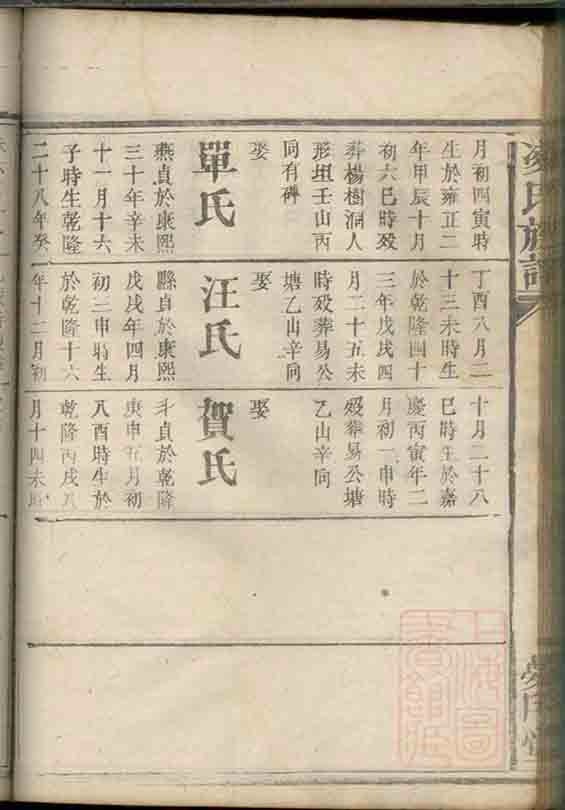 凌氏族譜
月初四寅時
生於雍正二
年甲辰十月
初六巳時殁
葬楊樹洞人
形坦壬山丙
同有碑
娶
單氏
燕貞於康熙
三十年辛未
十一月十六
子時生乾隆
二十八年癸
丁酉八月二
十三未時生
於乾隆四十
三年戊戌四
月二十五未
時殁葬易公
塘乙山辛向
娶
汪氏
縣貞於康熙
戊戌年四月
初三申時生
於乾隆十六
年十二月初
十月二十八
巳時生於嘉
慶丙寅年二
月初一申時
殁葬易公塘
乙山辛向
娶
賀氏
斗貞於乾隆
庚申五月初
八酉時生於
乾隆丙戌八
月十四未時